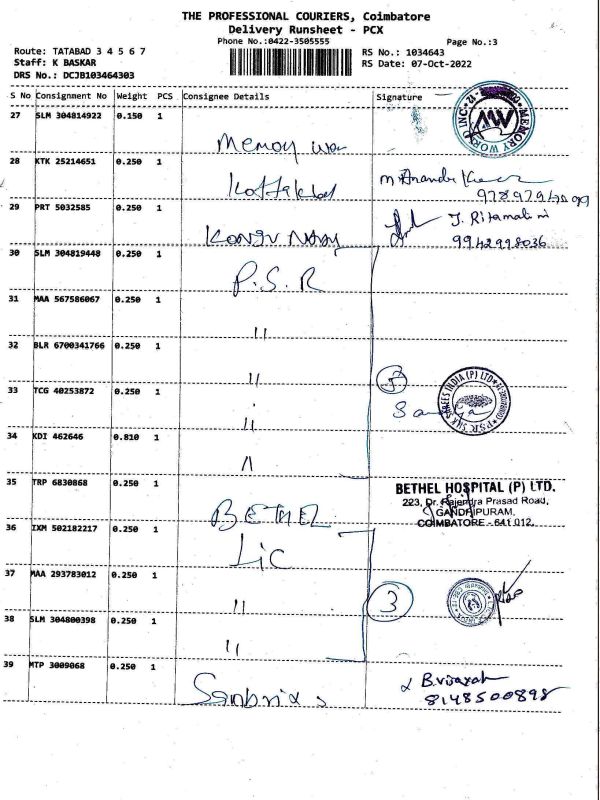 THE PROFESSIONAL COURIERS, Coimbatore
Delivery Runsheet - PCX
Phone No.:0422-3505555
Page No.:3
Route: TATABAD 3 4 5 6 7
RS No.: 1034643
Staff: K BASKAR
RS Date: 07-Oct-2022
DRS No.: DCJB103464303
S No Consignment No Weight PCS Consignee Details Signature
27 SLM 304814922 0.150 1
Memory
MEMORY WORLD INC
MW
28 KTK 25214651 0.250 1
29 PRT 5032585 0.250 1
9942998036
30 SLM 304819448 0.250 1 P.S.R
31 MAA 567586067 0.250 1 11
32 BLR 6700341766 0.250 1 11
5
33 TCG 40253872 0.250 1 11
34 KDI 462646 0.810 1 11
35 TRP 6830868 0.250 1 BETHEL
BETHEL HOSPITAL (P) LTD.
223, Dr. Rajendra Prasad Road,
GANDHIPURAM,
COIMBATORE - 641 012.
36 IXM 502182217 0.250 1 Lic
37 MAA 293783012 0.250 1 11
3
38 SLM 304800398 0.250 1 11
39 MTP 3009068 0.250 1
8148500898